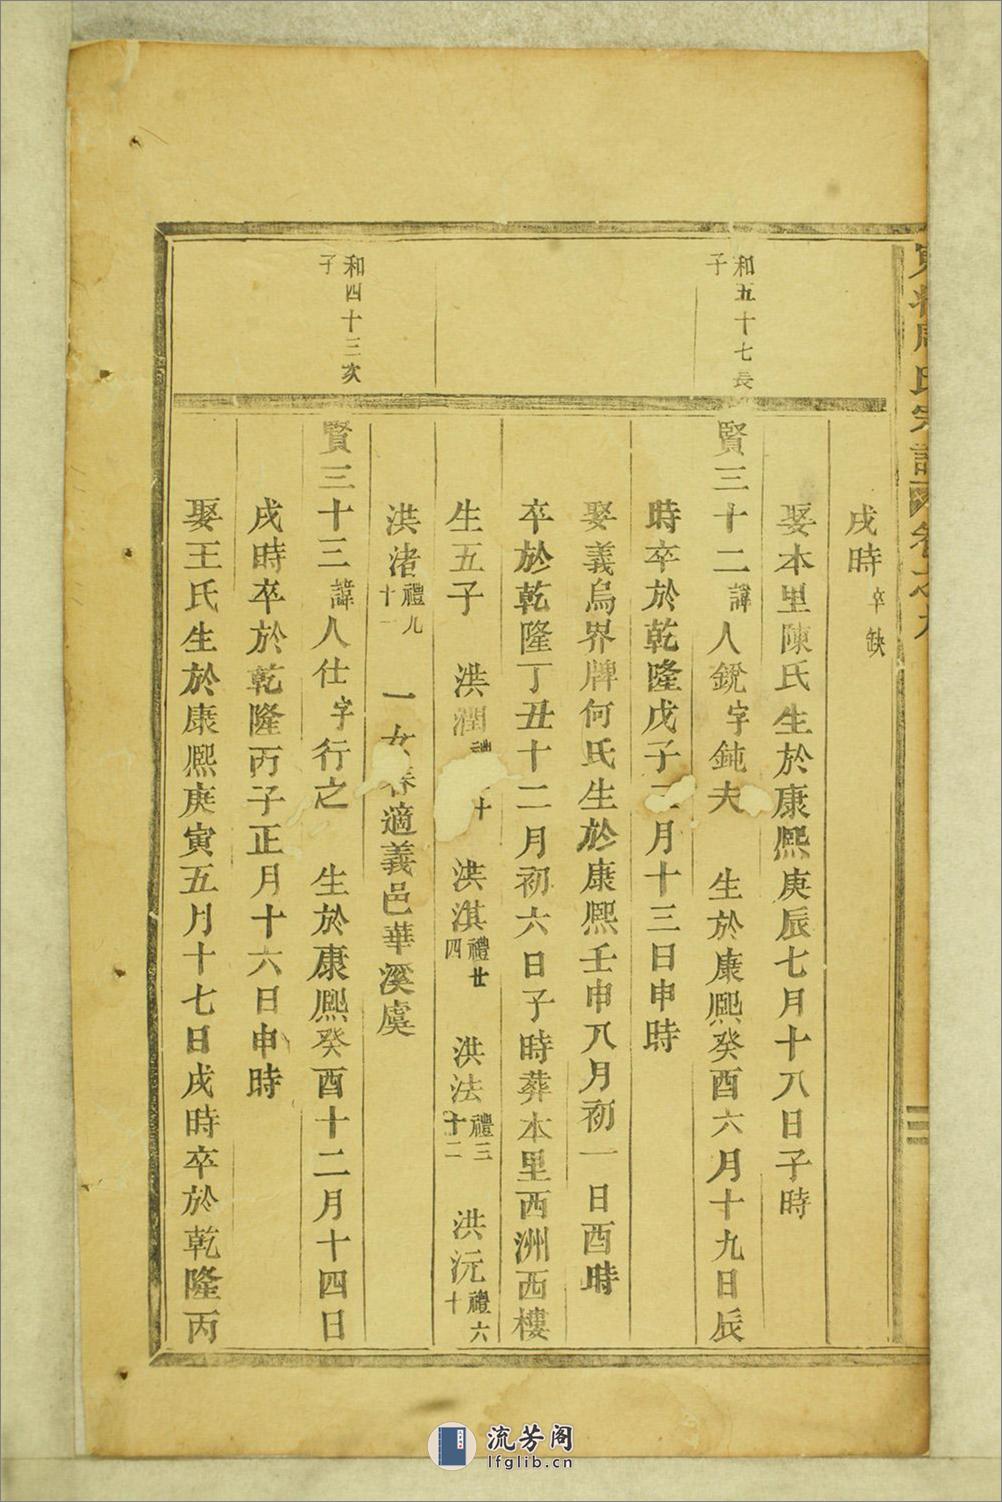 氏宗譜 卷之九
戌時卒缺
娶本里陳氏生於康熙庚辰七月十八日子時
和五十七長子
賢三十二諱人鋭字鈍夫 生於康熙癸酉六月十九日辰
時卒於乾隆戊子 月十三日申時
娶義烏界牌何氏生於康熙壬申八月初一日酉時
卒於乾隆丁丑十二月初六日子時葬本里西洲西樓
生五子 洪潤 十 洪淇禮廿四 洪法禮三十二 洪沅禮六十
洪渚禮九十一 一女 適義邑華溪虞
和四十三次子
賢三十三諱人仕字行之 生於康熙癸酉十二月十四日
戌時卒於乾隆丙子正月十六日申時
娶王氏生於康熙庚寅五月十七日戌時卒於乾隆丙
流芳阁
lfglib.cn